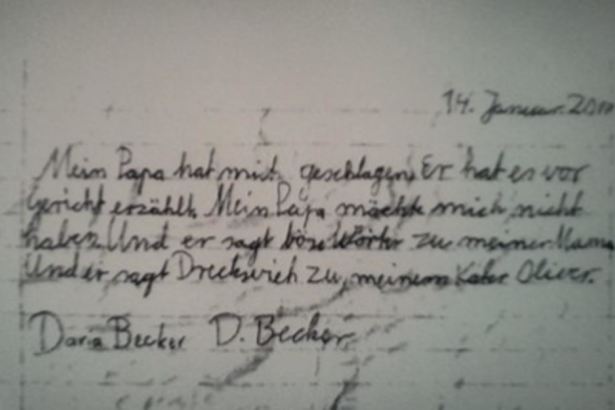 14. Januar
Mein Papa hat mich geschlagen. Er hat es vor
Gericht erzählt. Mein Papa möchte mich nicht
haben. Und er sagt böse Wörter zu meiner Mama
Und er sagt Dreckvieh zu meinem Kater Oliver.
Daria Becker D. Becker